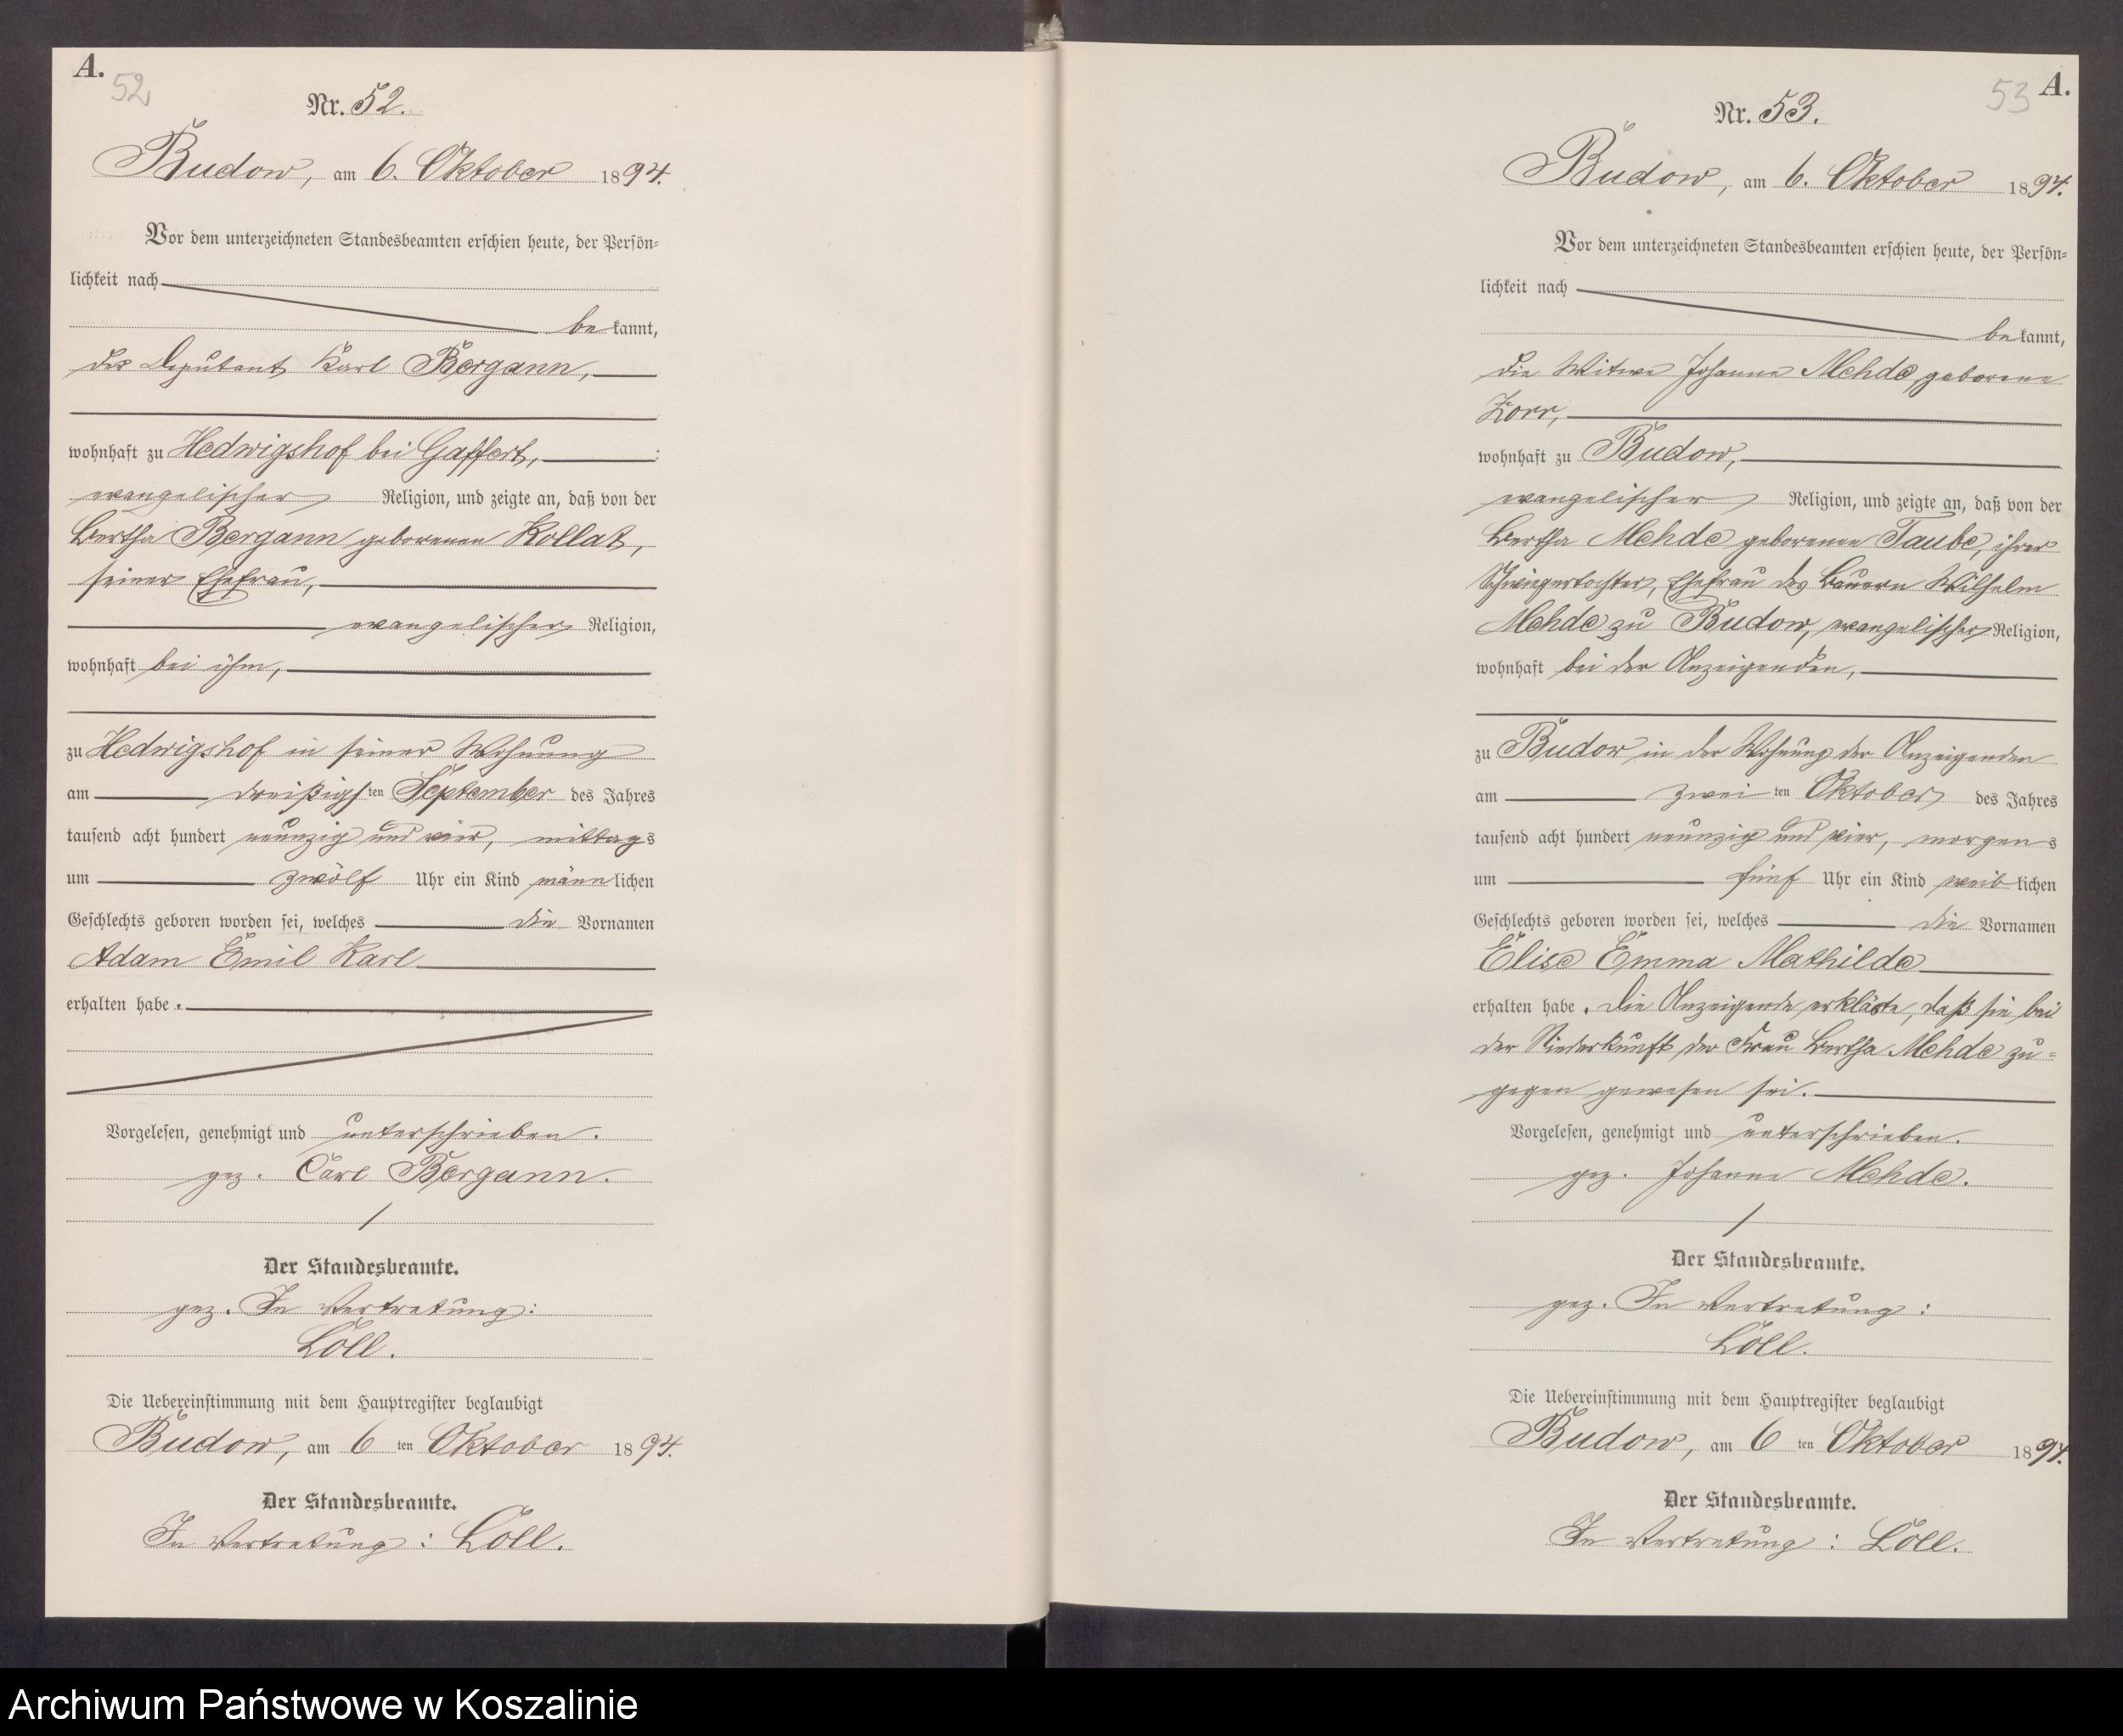 A.
52
Nr. 52.
Budow, am 6. Oktober 1894.
Vor dem unterzeichneten Standesbeamten erschien heute, der Persön=
lichkeit nach
bekannt,
der Deputant Karl Bergann,
wohnhaft zu Hedwigshof bei Gaffert,
evangelischer Religion, und zeigte an, daß von der
Bertha Bergann geborenen Kollat,
seiner Ehefrau,
evangelischer Religion,
wohnhaft bei ihm,
zu Hedwigshof in seiner Wohnung
am dreißigsten September des Jahres
tausend acht hundert neunzig und vier, mittags
um zwölf Uhr ein Kind männlichen
Geschlechts geboren worden sei, welches die Vornamen
Adam Emil Karl
erhalten habe.
Vorgelesen, genehmigt und unterschrieben.
gez. Carl Bergann.
Der Standesbeamte.
gez. In Vertretung:
Löll.
Die Uebereinstimmung mit dem Hauptregister beglaubigt
Budow, am 6ten Oktober 1894.
Der Standesbeamte.
In Vertretung: Löll.
53
A.
Nr. 53.
Budow, am 6. Oktober 1894.
Vor dem unterzeichneten Standesbeamten erschien heute, der Persön=
lichkeit nach
bekannt,
die Witwe Johanne Mehde, geborene
Zorr,
wohnhaft zu Budow,
evangelischer Religion, und zeigte an, daß von der
Bertha Mehde geborenen Taube, ihrer
Schwiegertochter, Ehefrau des Bauern Wilhelm
Mehde zu Budow, evangelischer Religion,
wohnhaft bei der Anzeigenden,
zu Budow in der Wohnung der Anzeigenden
am zweiten Oktober des Jahres
tausend acht hundert neunzig und vier, morgens
um fünf Uhr ein Kind weiblichen
Geschlechts geboren worden sei, welches die Vornamen
Elise Emma Mathilde
erhalten habe. Die Anzeigende erklärte, daß sie bei
der Niederkunft der Frau Bertha Mehde zu=
gegen gewesen sei.
Vorgelesen, genehmigt und unterschrieben.
gez. Johanne Mehde.
Der Standesbeamte.
gez. In Vertretung:
Löll.
Die Uebereinstimmung mit dem Hauptregister beglaubigt
Budow, am 6ten Oktober 1894.
Der Standesbeamte.
In Vertretung: Löll.
Archiwum Państwowe w Koszalinie